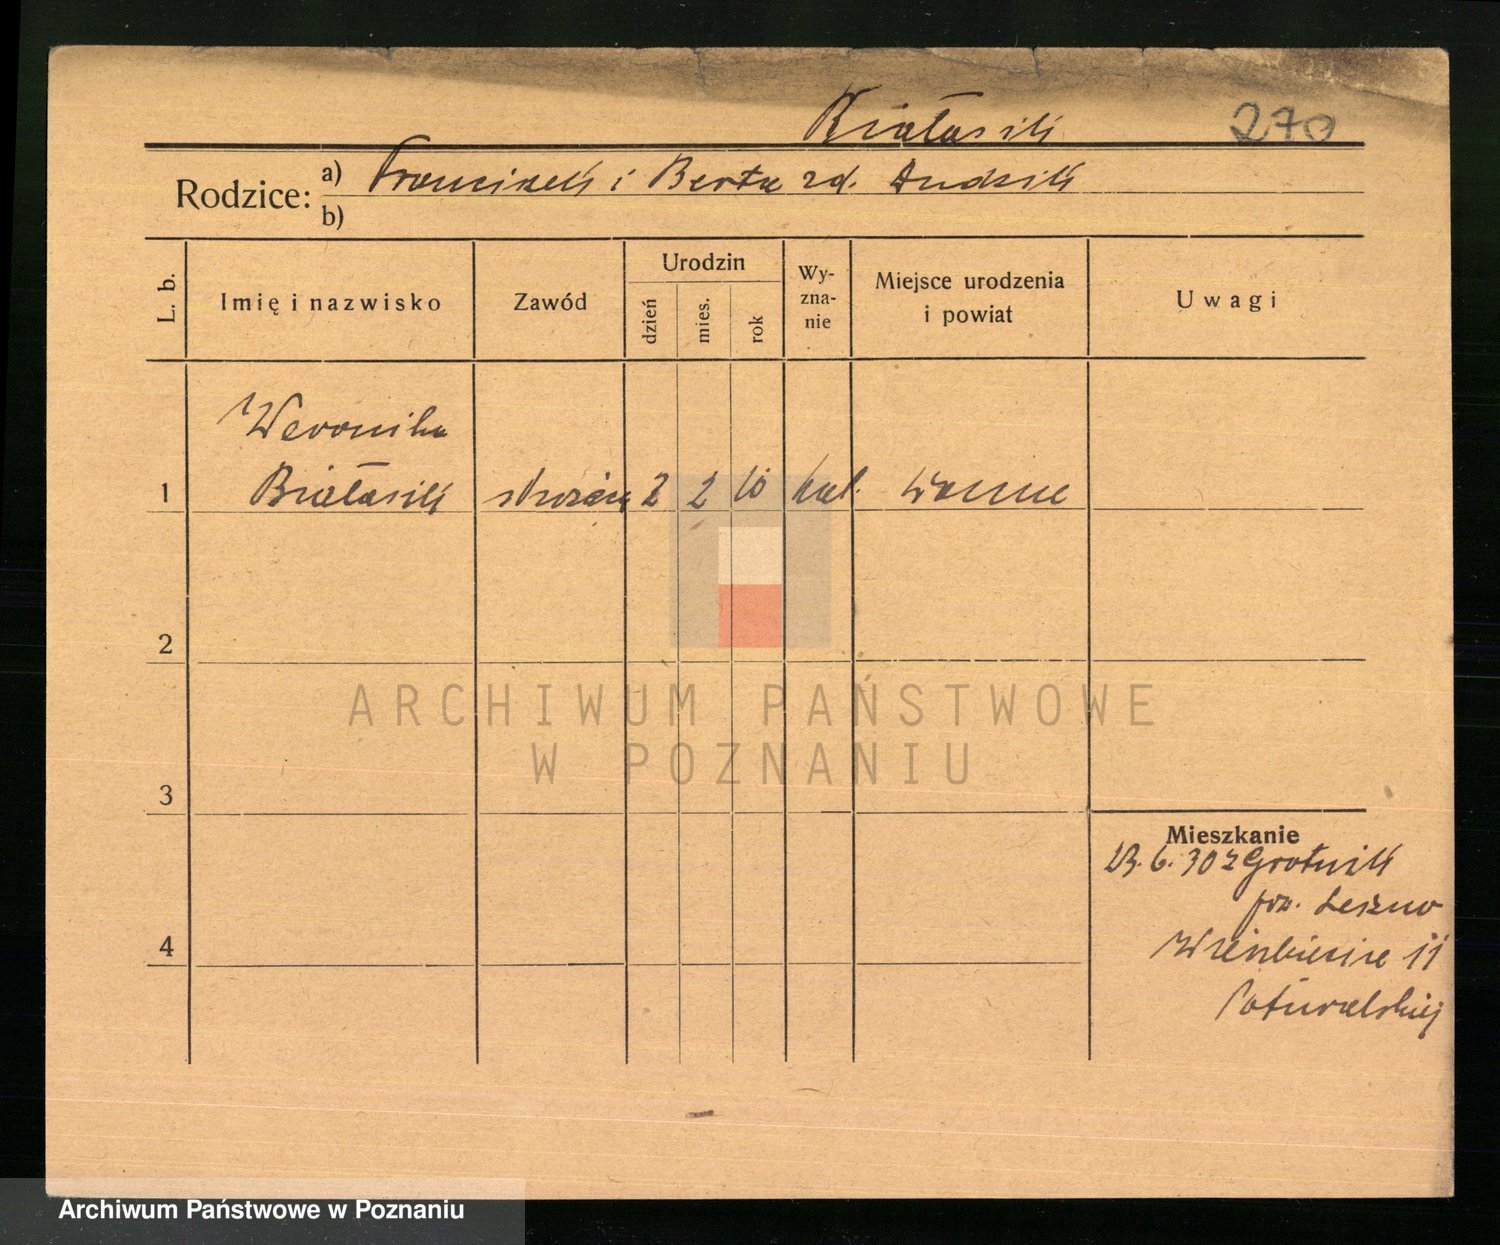 Białasik 270
Rodzice: a) Franciszek i Berta zd. Dudzik
b)
L. b.
Imię i nazwisko
Zawód
Urodzin
dzień
mies.
rok
Wy-
zna-
nie
Miejsce urodzenia
i powiat
Uwagi
Weronika
1 Białasik służąca 2 2 10 kat. Wanne
2
ARCHIWUM PAŃSTWOWE
W POZNANIU
3
Mieszkanie
6. 30 z Grotnik
pow. Leszno
11
4
Archiwum Państwowe w Poznaniu